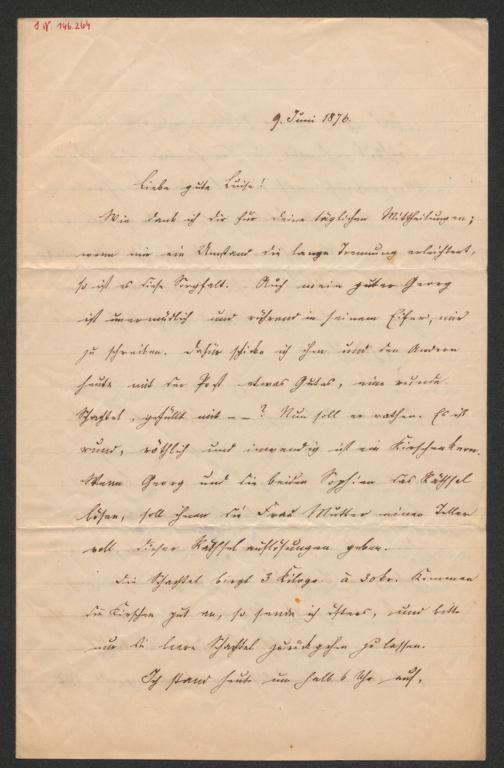 I.N. 146.264
9. Juni 1876.
Liebe gute Luise!
Wie dank ich dir für deine täglichen Mittheilungen;
wenn mir ein Umstand die lange Trennung erleichtert,
so ist es diese Sorgfalt. Auch mein guter Georg
ist unermüdlich und rührend in seinem Eifer, mir
zu schreiben. Dafür schicke ich ihm und den Andern
heute mit der Post etwas Gutes, eine runde
Schachtel, gefüllt mit – – ? Nun soll er rathen. Es ist
rund, röthlich und inwendig ist ein Kirschenkern.
Wenn Georg und die beiden Sophien das Räthsel
lösen, soll ihnen die Frau Mutter einen Teller
voll dieser Räthselauflösungen geben.
Die Schachtel birgt 3 Kilogr. à 30 kr. Kommen
die Kirschen gut an, so sende ich öfters, und bitte
nur die leere Schachtel zurückgehen zu lassen.
Ich stand heute um halb 6 Uhr auf,